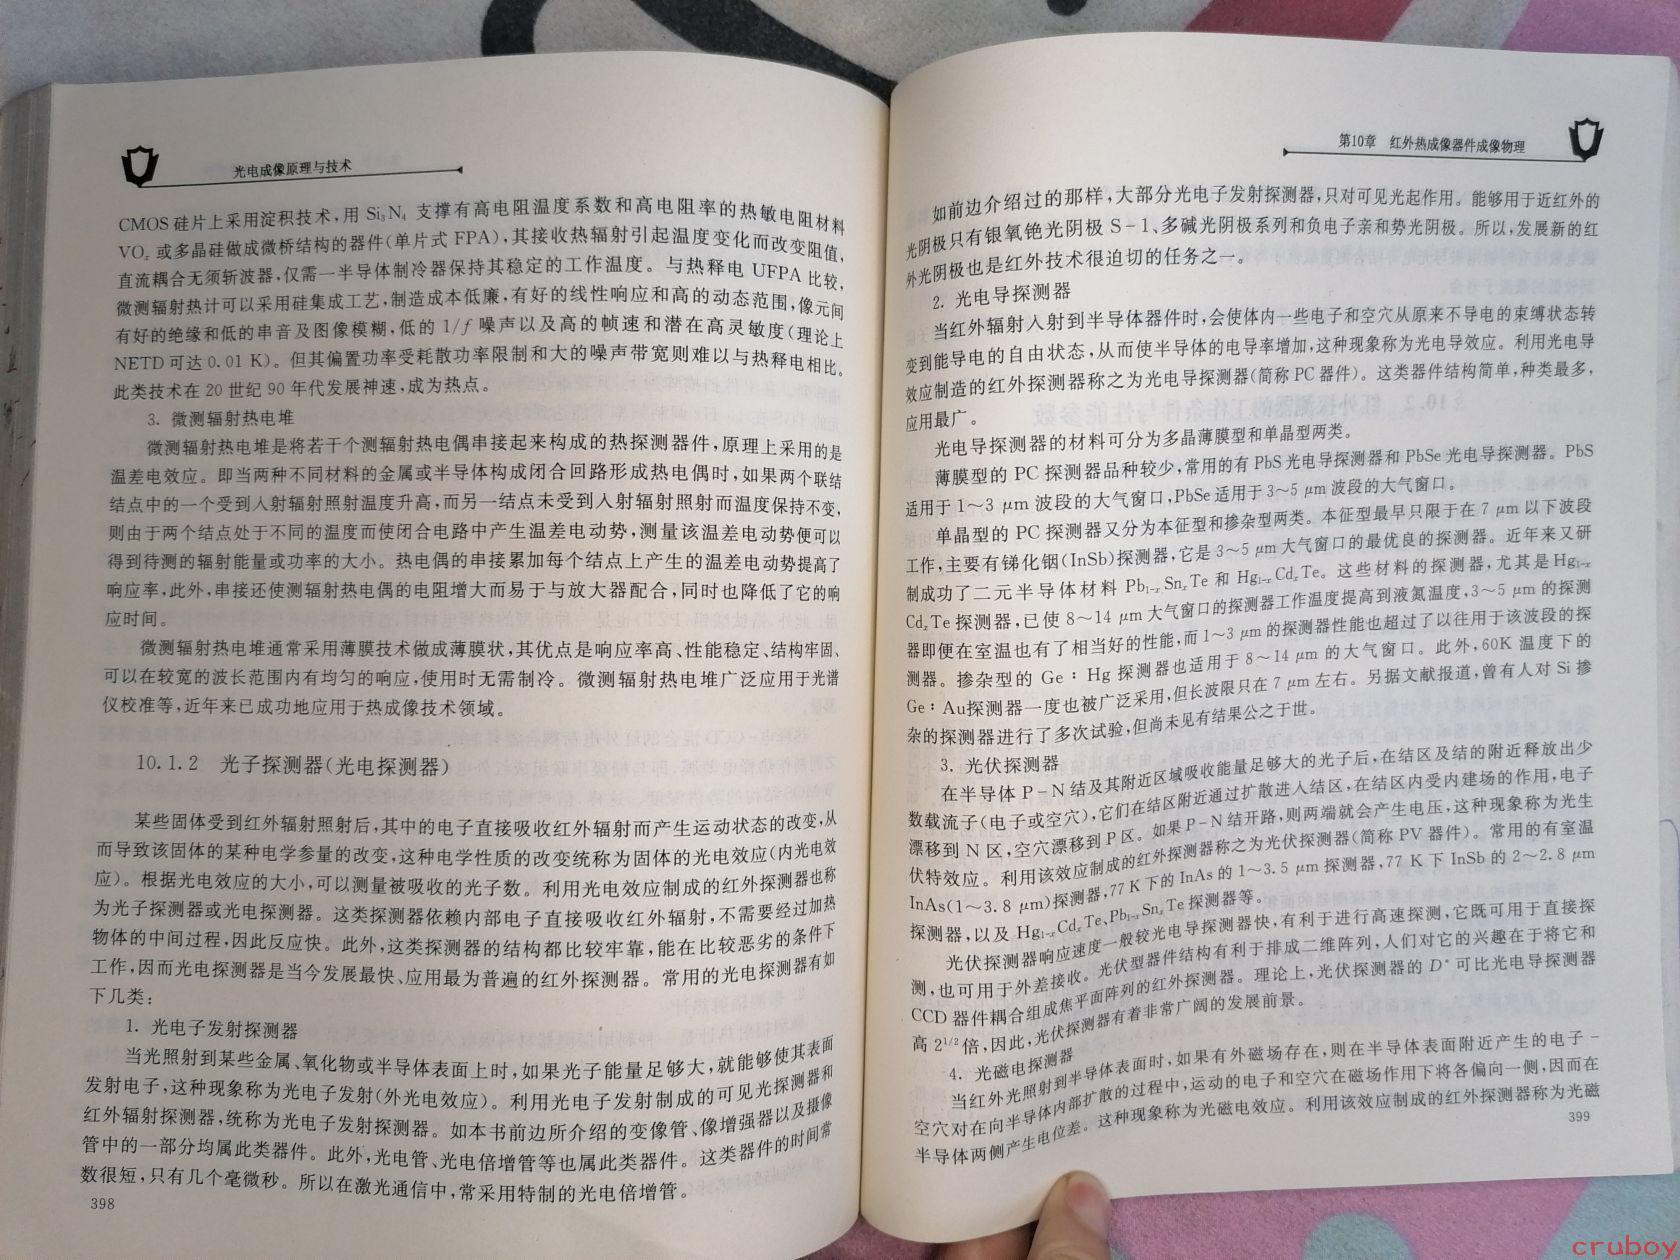 光电成像原理与技术
CMOS硅片上采用淀积技术,用 Si₃N₄ 支撑有高电阻温度系数和高电阻率的热敏电阻材料
VOₓ 或多晶硅做成微桥结构的器件(单片式 FPA),其接收热辐射引起温度变化而改变阻值,
直流耦合无须斩波器,仅需一半导体制冷器保持其稳定的工作温度。与热释电 UFPA 比较,
微测辐射热计可以采用硅集成工艺,制造成本低廉,有好的线性响应和高的动态范围,像元间
有好的绝缘和低的串音及图像模糊,低的 1/f 噪声以及高的帧速和潜在高灵敏度(理论上
NETD可达0.01 K)。但其偏置功率受耗散功率限制和大的噪声带宽则难以与热释电相比。
此类技术在 20 世纪 90 年代发展神速,成为热点。
3. 微测辐射热电堆
微测辐射热电堆是将若干个测辐射热电偶串接起来构成的热探测器件,原理上采用的是
温差电效应。即当两种不同材料的金属或半导体构成闭合回路形成热电偶时,如果两个联结
结点中的一个受到入射辐射照射温度升高,而另一结点未受到入射辐射照射而温度保持不变,
则由于两个结点处于不同的温度而使闭合电路中产生温差电动势,测量该温差电动势便可以
得到待测的辐射能量或功率的大小。热电偶的串接累加每个结点上产生的温差电动势提高了
响应率,此外,串接还使测辐射热电偶的电阻增大而易于与放大器配合,同时也降低了它的响
应时间。
微测辐射热电堆通常采用薄膜技术做成薄膜状,其优点是响应率高、性能稳定、结构牢固、
可以在较宽的波长范围内有均匀的响应,使用时无需制冷。微测辐射热电堆广泛应用于光谱
仪校准等,近年来已成功地应用于热成像技术领域。
10.1.2 光子探测器(光电探测器)
某些固体受到红外辐射照射后,其中的电子直接吸收红外辐射而产生运动状态的改变,从
而导致该固体的某种电学参量的改变,这种电学性质的改变统称为固体的光电效应(内光电效
应)。根据光电效应的大小,可以测量被吸收的光子数。利用光电效应制成的红外探测器也称
为光子探测器或光电探测器。这类探测器依赖内部电子直接吸收红外辐射,不需要经过加热
物体的中间过程,因此反应快。此外,这类探测器的结构都比较牢靠,能在比较恶劣的条件下
工作,因而光电探测器是当今发展最快、应用最为普遍的红外探测器。常用的光电探测器有如
下几类:
1. 光电子发射探测器
当光照射到某些金属、氧化物或半导体表面上时,如果光子能量足够大,就能够使其表面
发射电子,这种现象称为光电子发射(外光电效应)。利用光电子发射制成的可见光探测器和
红外辐射探测器,统称为光电子发射探测器。如本书前边所介绍的变像管、像增强器以及摄像
管中的一部分均属此类器件。此外,光电管、光电倍增管等也属此类器件。这类器件的时间常
数很短,只有几个毫微秒。所以在激光通信中,常采用特制的光电倍增管。
398
第10章 红外热成像器件成像物理
如前边介绍过的那样,大部分光电子发射探测器,只对可见光起作用。能够用于近红外的
光阴极只有银氧铯光阴极 S-1、多碱光阴极系列和负电子亲和势光阴极。所以,发展新的红
外光阴极也是红外技术很迫切的任务之一。
2. 光电导探测器
当红外辐射入射到半导体器件时,会使体内一些电子和空穴从原来不导电的束缚状态转
变到能导电的自由状态,从而使半导体的电导率增加,这种现象称为光电导效应。利用光电导
效应制造的红外探测器称之为光电导探测器(简称 PC 器件)。这类器件结构简单,种类最多,
应用最广。
光电导探测器的材料可分为多晶薄膜型和单晶型两类。
薄膜型的 PC 探测器品种较少,常用的有 PbS 光电导探测器和 PbSe 光电导探测器。PbS
适用于 1~3 μm 波段的大气窗口,PbSe 适用于 3~5 μm 波段的大气窗口。
单晶型的 PC 探测器又分为本征型和掺杂型两类。本征型最早只限于在 7 μm 以下波段
工作,主要有锑化铟(InSb)探测器,它是 3~5 μm 大气窗口的最优良的探测器。近年来又研
制成功了二元半导体材料 Pb₁₋ₓSnₓTe 和 Hg₁₋ₓCdₓTe。这些材料的探测器,尤其是 Hg₁₋ₓ
CdₓTe 探测器,已使 8~14 μm 大气窗口的探测器工作温度提高到液氮温度,3~5 μm 的探测
器即便在室温也有了相当好的性能,而 1~3 μm 的探测器性能也超过了以往用于该波段的探
测器。掺杂型的 Ge:Hg 探测器也适用于 8~14 μm 的大气窗口。此外,60K 温度下的
Ge:Au探测器一度也被广泛采用,但长波限只在 7 μm 左右。另据文献报道,曾有人对 Si 掺
杂的探测器进行了多次试验,但尚未见有结果公之于世。
3. 光伏探测器
在半导体 P-N 结及其附近区域吸收能量足够大的光子后,在结区及结的附近释放出少
数载流子(电子或空穴),它们在结区附近通过扩散进入结区,在结区内受内建场的作用,电子
漂移到 N 区,空穴漂移到 P 区。如果 P-N 结开路,则两端就会产生电压,这种现象称为光生
伏特效应。利用该效应制成的红外探测器称之为光伏探测器(简称 PV 器件)。常用的有室温
InAs(1~3.8 μm)探测器,77 K 下的 InAs 的 1~3.5 μm 探测器,77 K 下 InSb 的 2~2.8 μm
探测器,以及 Hg₁₋ₓCdₓTe、Pb₁₋ₓSnₓTe 探测器等。
光伏探测器响应速度一般较光电导探测器快,有利于进行高速探测,它既可用于直接探
测,也可用于外差接收。光伏型器件结构有利于排成二维阵列,人们对它的兴趣在于将它和
CCD 器件耦合组成焦平面阵列的红外探测器。理论上,光伏探测器的 D* 可比光电导探测器
高 2^1/2 倍,因此,光伏探测器有着非常广阔的发展前景。
4. 光磁电探测器
当红外光照射到半导体表面时,如果有外磁场存在,则在半导体表面附近产生的电子-
空穴对在向半导体内部扩散的过程中,运动的电子和空穴在磁场作用下将各偏向一侧,因而在
半导体两侧产生电位差。这种现象称为光磁电效应。利用该效应制成的红外探测器称为光磁
399
cruboy